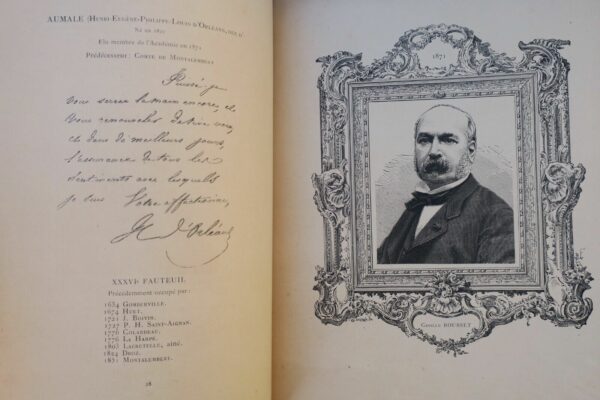 AUMALE (Henri-Eugène-Philippe-Louis d'Orléans, duc d'
Né en 1822
Élu membre de l'Académie en 1871
Prédécesseur : Comte de Montalembert
Puissé-je
vous serrer la main encore, et
vous renouveler de vive voix,
et dans de meilleurs jours,
l'assurance de tous les
sentiments avec lesquels
je suis Votre affectionné,
H d'Orléans
XXXVIe FAUTEUIL
Précédemment occupé par :
1634 Gomberville
1674 Huet
1721 J. Boivin
1727 P. H. Saint-Aignan
1776 Colardeau
1776 La Harpe
1803 Lacretelle, aîné
1824 Droz
1851 Montalembert
28
1871
Camille ROUSSET